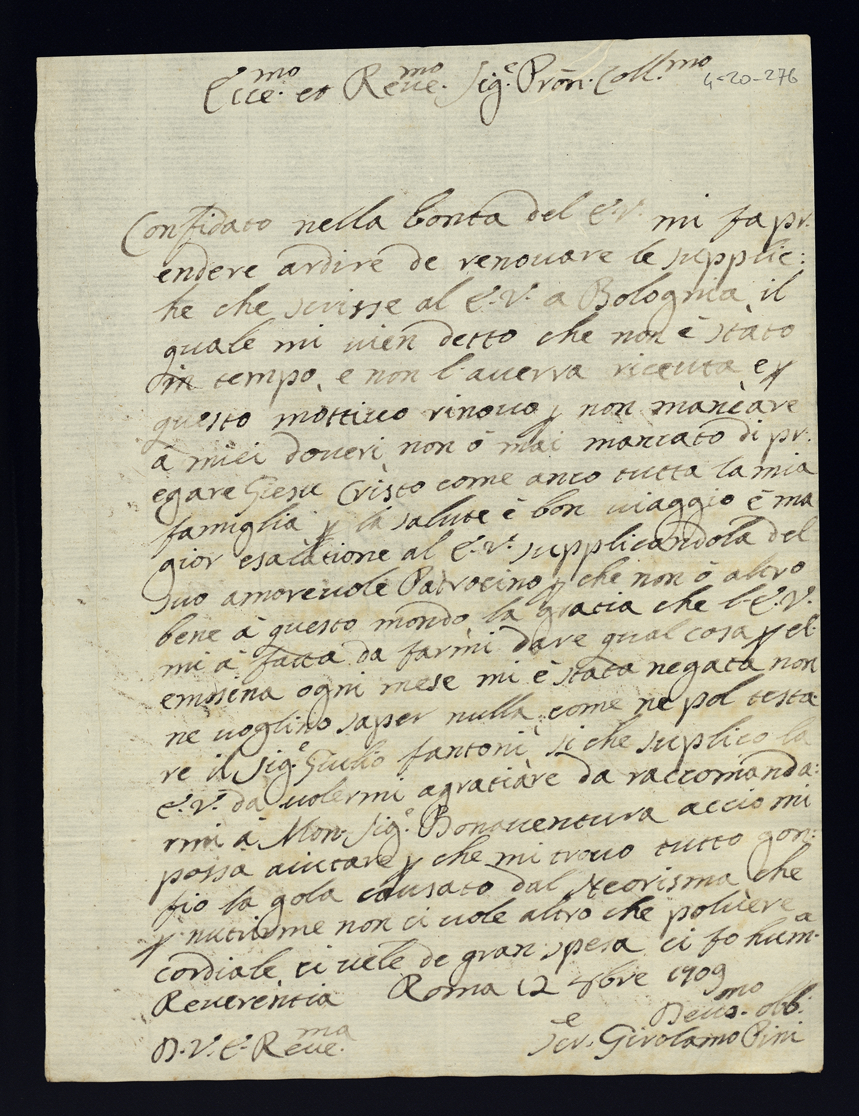 Ecce.mo et Reve.mo Sig.e Pron. Coll.mo
4-20-276
Confidato nella bonta del E.V. mi fa pr:
endere ardire de renovare le supplic:
he che scrisse al E.V. a Bologna il
quale mi vien detto che non è stàto
in tempo, e non l'averra riceuta e p
questo mottivo rinovo p non mancàre
a miei doveri non ò mai mancato di pr:
egare Giesu Cristo come anco tutta la mia
famiglia p la salute è bon viaggio è ma
gior esalatione al E.V. supplicandola del
suo amorevole Patrocino p che non ò altro
bene à questo mondo la gratia che l'E.V.
mi à fatta da farmi dare qual cosa p el
emosina ogni mese mi è stata negata non
ne voglino saper nulla come ne pol testa
re il Sig.e Giulio fantoni si che suplico la
E.V. da volermi agratiàre da raccomanda:
rmi à Mon. Sig.e Bonaventura accio mi
possa aiutare p che mi trovo tutto gon:
fio la gola causato dal che
p nutrirme non ci vole altro che polvere
cordiale ci vole de gran spesa ci fo hum.a
Reverentia Roma 12 1709
D.V.E. Reve.ma Devs.mo obb.
Ser.e Girolamo Pini